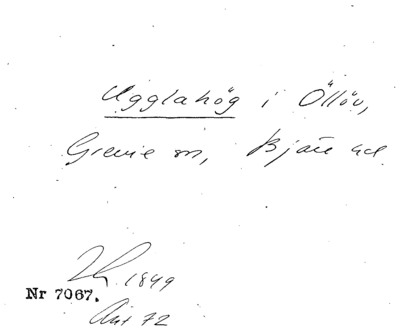 Ugglahög i Öllöv,
Grevie sn, Bjäre hd
1849
Nr 7067.
72